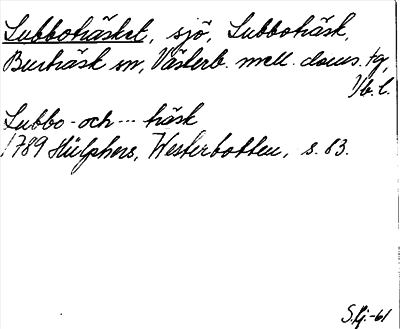 Lubboträsket, sjö, Lubboträsk,
Burträsk sn, Västerb. mell. doms. tg,
Vb. l.
Lubbo- och --- träsk
1789 Hülphers, Westerbotten, s. 83.
S.Lj-61